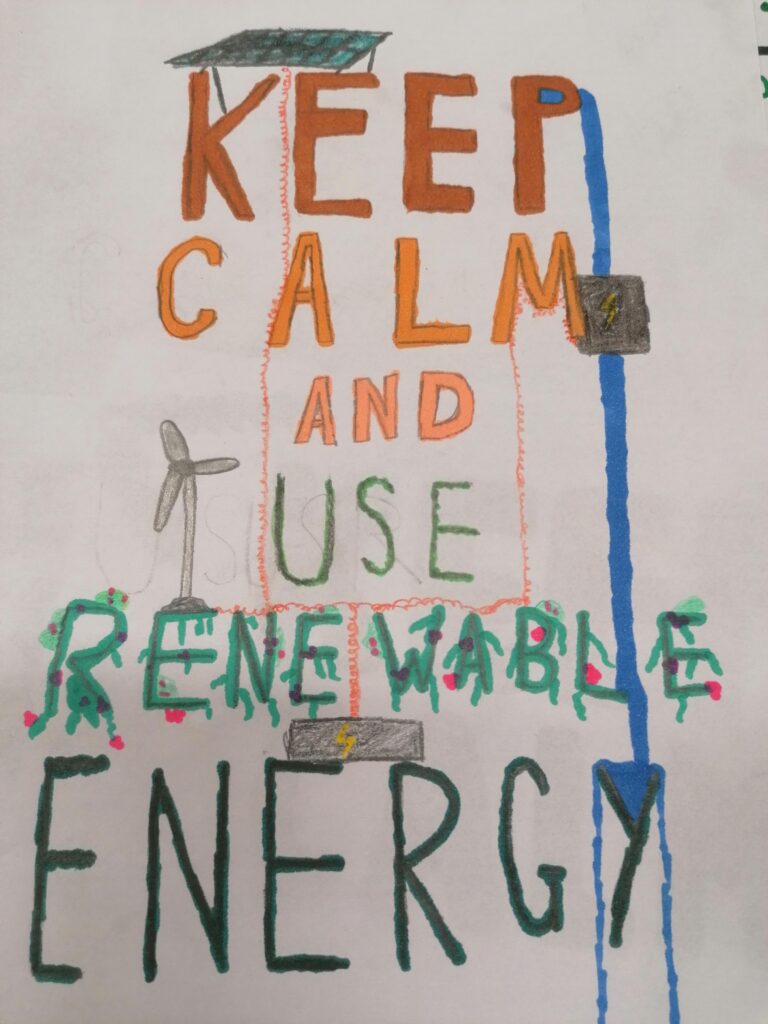 KEEP
CALM
AND
USE
RENEWABLE
ENERGY